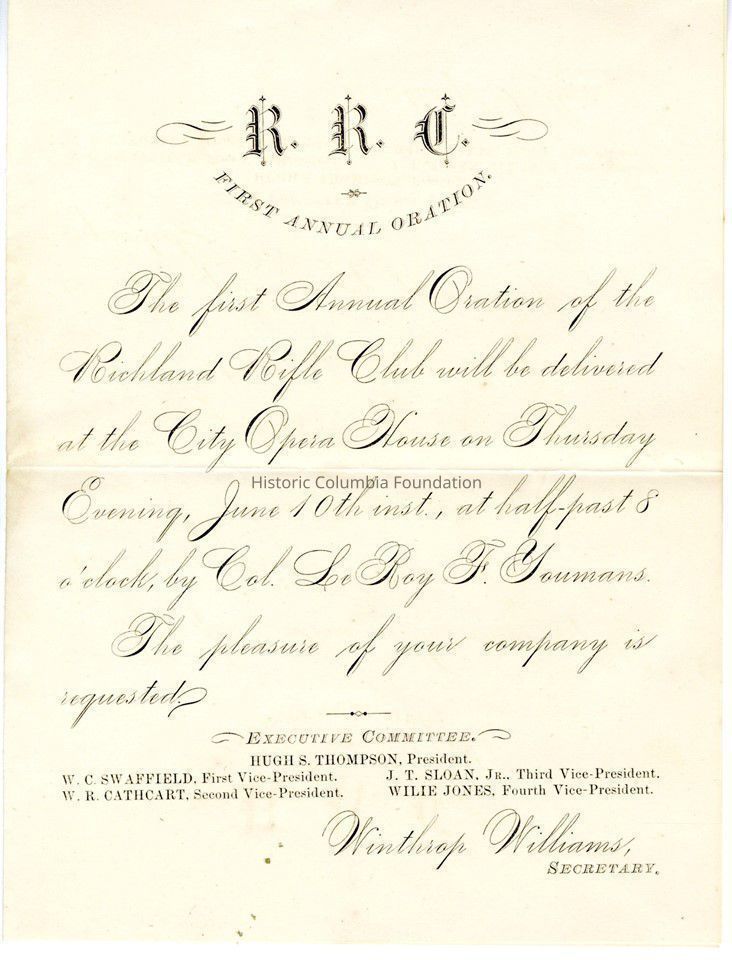 R. R. C.
FIRST ANNUAL ORATION.
The first Annual Oration of the
Richland Rifle Club will be delivered
at the City Opera House on Thursday
Historic Columbia Foundation
Evening, June 10th inst., at half-past 8
o'clock, by Col. LeRoy F. Youmans.
The pleasure of your company is
requested.
EXECUTIVE COMMITTEE.
HUGH S. THOMPSON, President.
W. C. SWAFFIELD, First Vice-President. J. T. SLOAN, JR., Third Vice-President.
W. R. CATHCART, Second Vice-President. WILIE JONES, Fourth Vice-President.
Winthrop Williams,
SECRETARY.